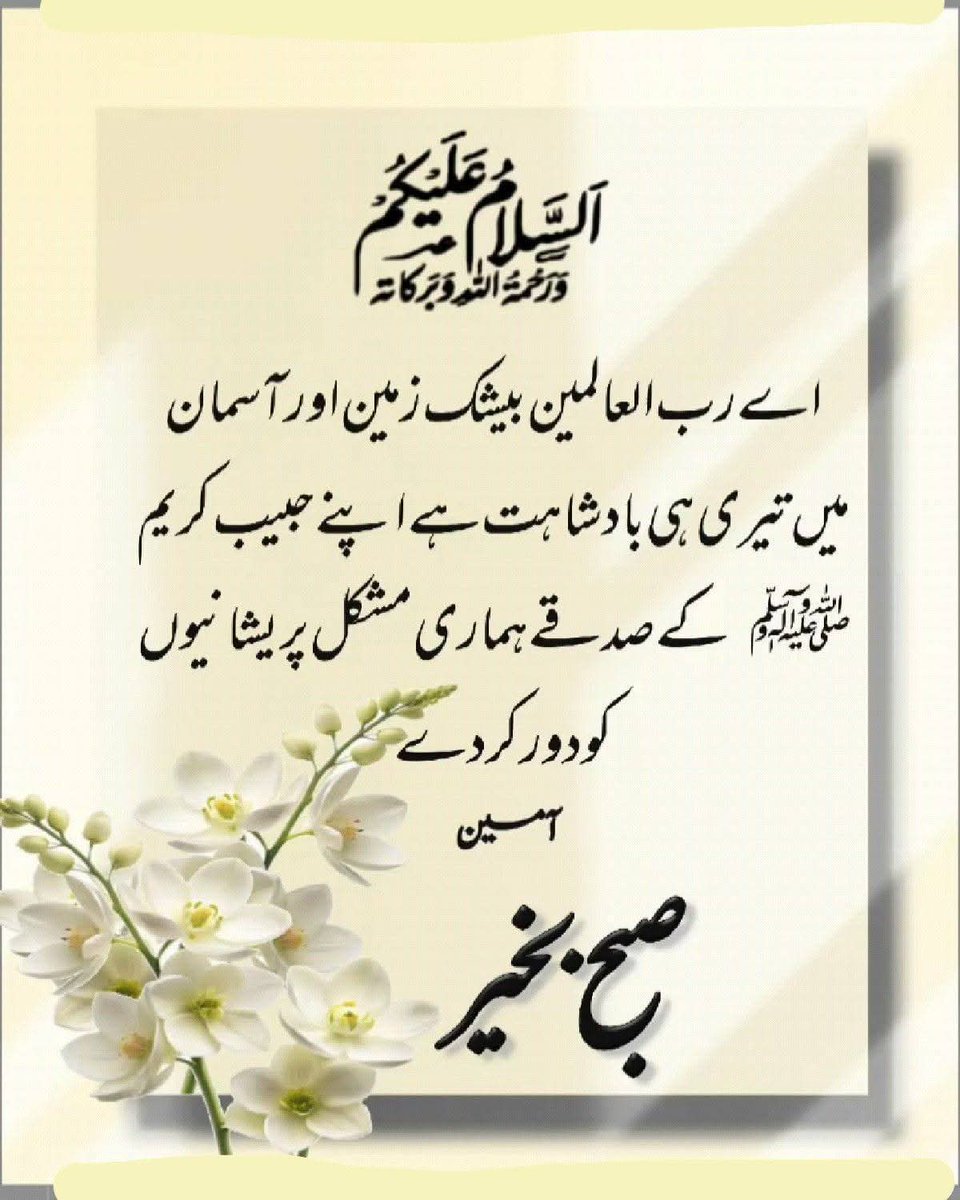 اَلسَّلَامُ عَلَيْكُمْ
وَرَحْمَةُ اللهِ وَبَرَكَاتهُ
اے رب العالمین بیشک زمین اور آسمان
میں تیری ہی بادشاہت ہے اپنے حبیب کریم
ﷺ کے صدقے ہماری مشکل پریشانیوں
کو دور کر دے
آمین
صبح بخیر